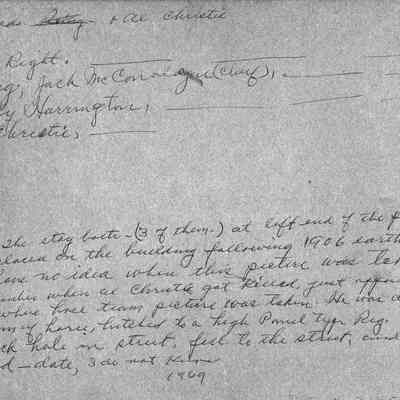 & Al Christie
Right.
Jack McCorra (chief),
y Harrington,
Christie,
The stay bolts - (3 of them.) at left end of the f
placed on the building following 1906 earth
have no idea when this picture was
when Al Christie got killed, just
where hose team picture was taken. He was
horse, hitched to a high Panel type Rig.
hole in street, fell to the street, and
d - date, I do not know
1969